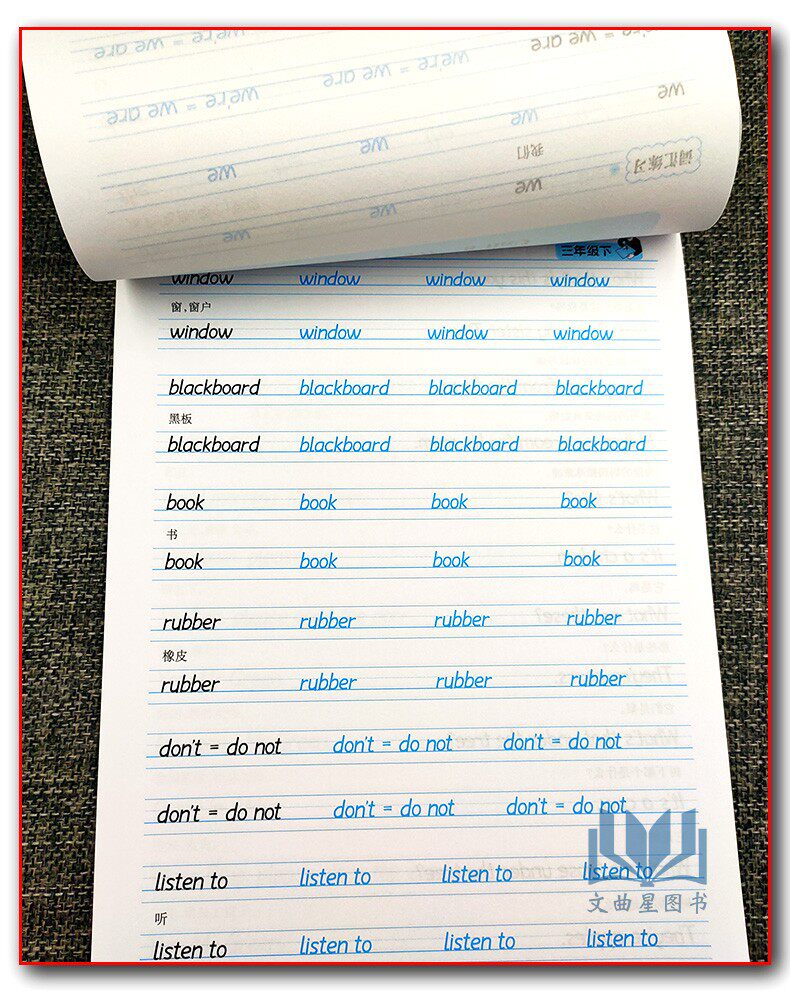 we're = we are we're = we are we're = we are
we're = we are we're = we are
we we we we
我们
we we we
词汇练习
三年级下
window window window window
窗,窗户
window window window window
blackboard blackboard blackboard blackboard
黑板
blackboard blackboard blackboard blackboard
book book book book
书
book book book book
rubber rubber rubber rubber
橡皮
rubber rubber rubber rubber
don't = do not don't = do not don't = do not
don't = do not don't = do not don't = do not
listen to listen to listen to listen to
听
listen to listen to listen to listen to
文曲星图书